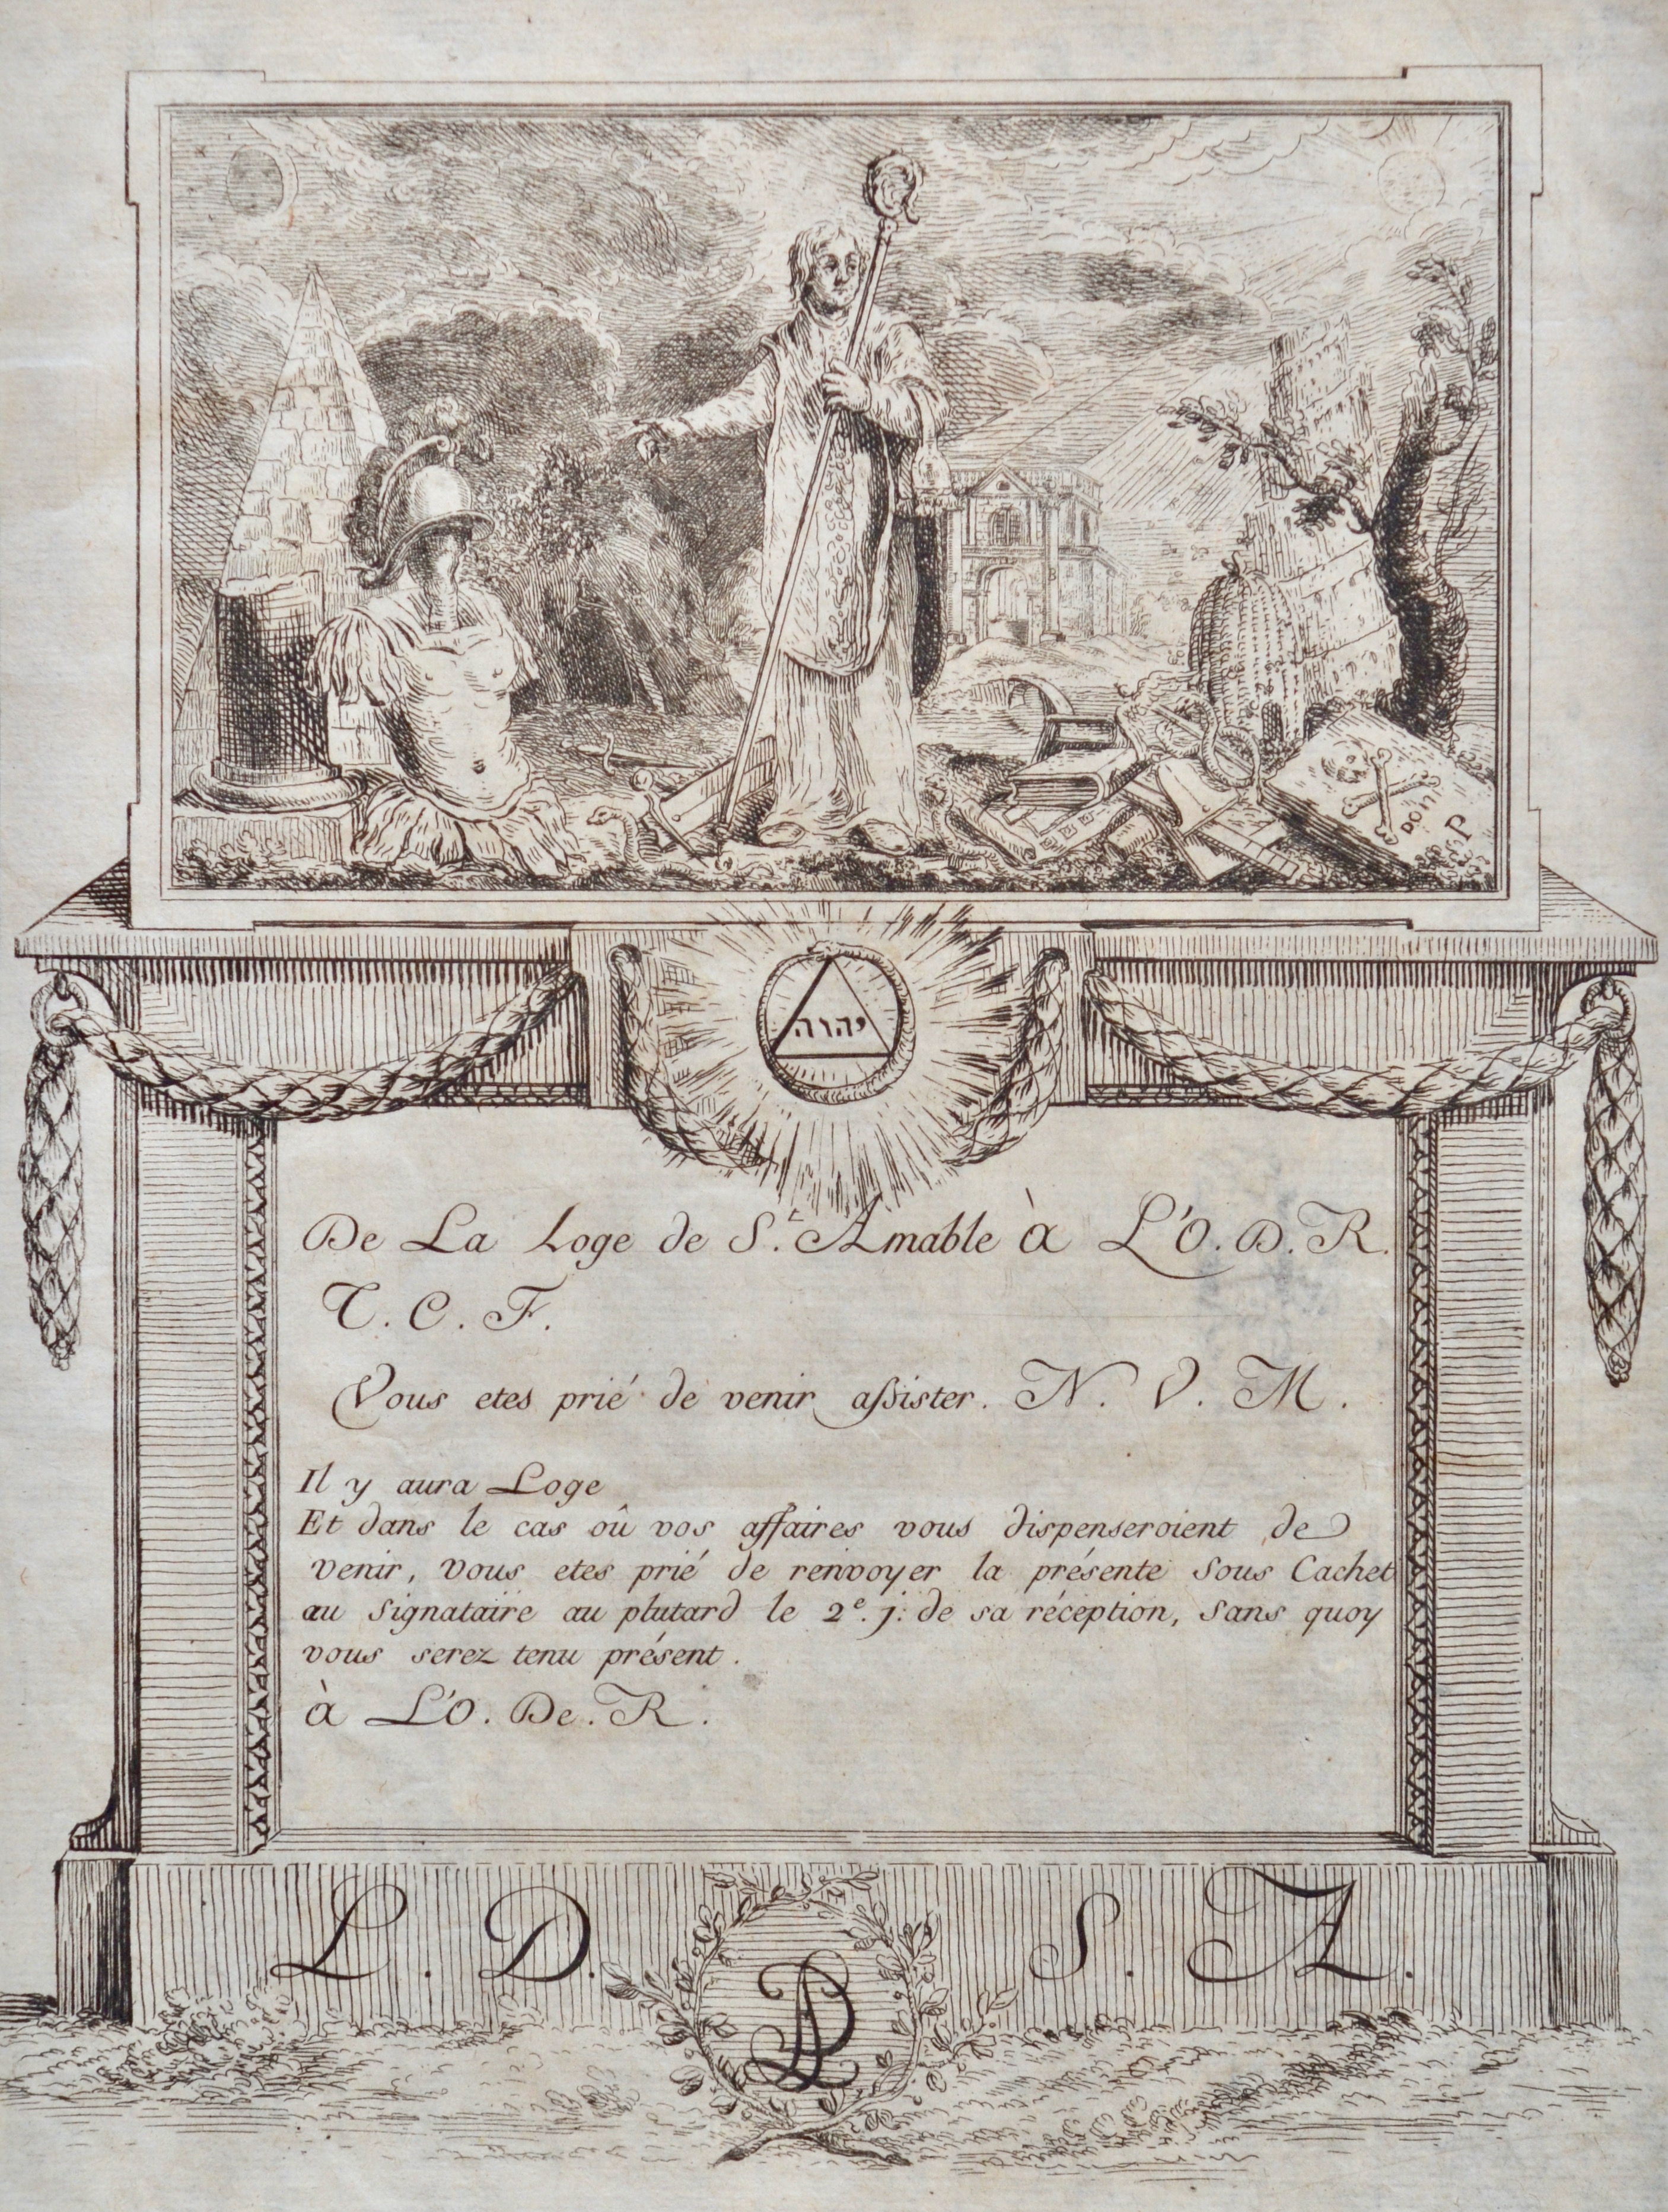 DOM
P
יהוה
De La Loge de S.t Amable à L'O. D. R.
T. C. F.
Vous etes prié de venir assister. N. V. M.
Il y aura Loge
Et dans le cas oû vos affaires vous dispenseroient de
venir, vous etes prié de renvoyer la présente sous Cachet
au signataire au plutard le 2e. j: de sa réception, sans quoy
vous serez tenu présent.
à L'O. De. R.
L. D. S. A.